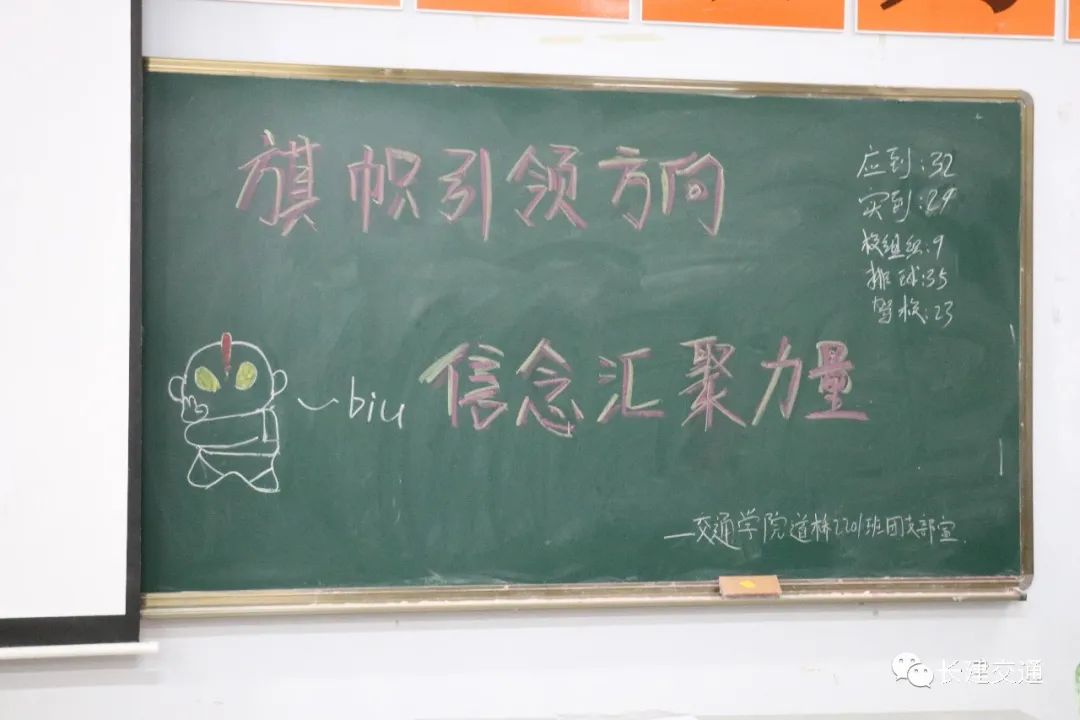 旗帜引领方向
应到:32
实到:29
校组织:9
排球:35
驾校:23
biu
信念汇聚力量
—交通学院道桥2201班团支部宣
长建交通